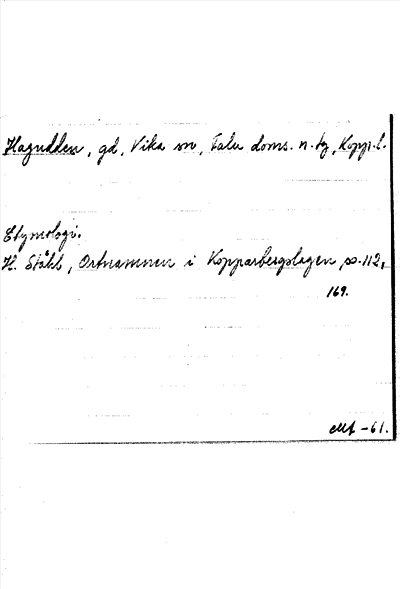 Hagudden, gd, Vika sn, Falu doms. n. tg, Kopp. l.
Etymologi.
H. Ståhl, Ortnamnen i Kopparbergslagen, ss. 112,
169.
-61.